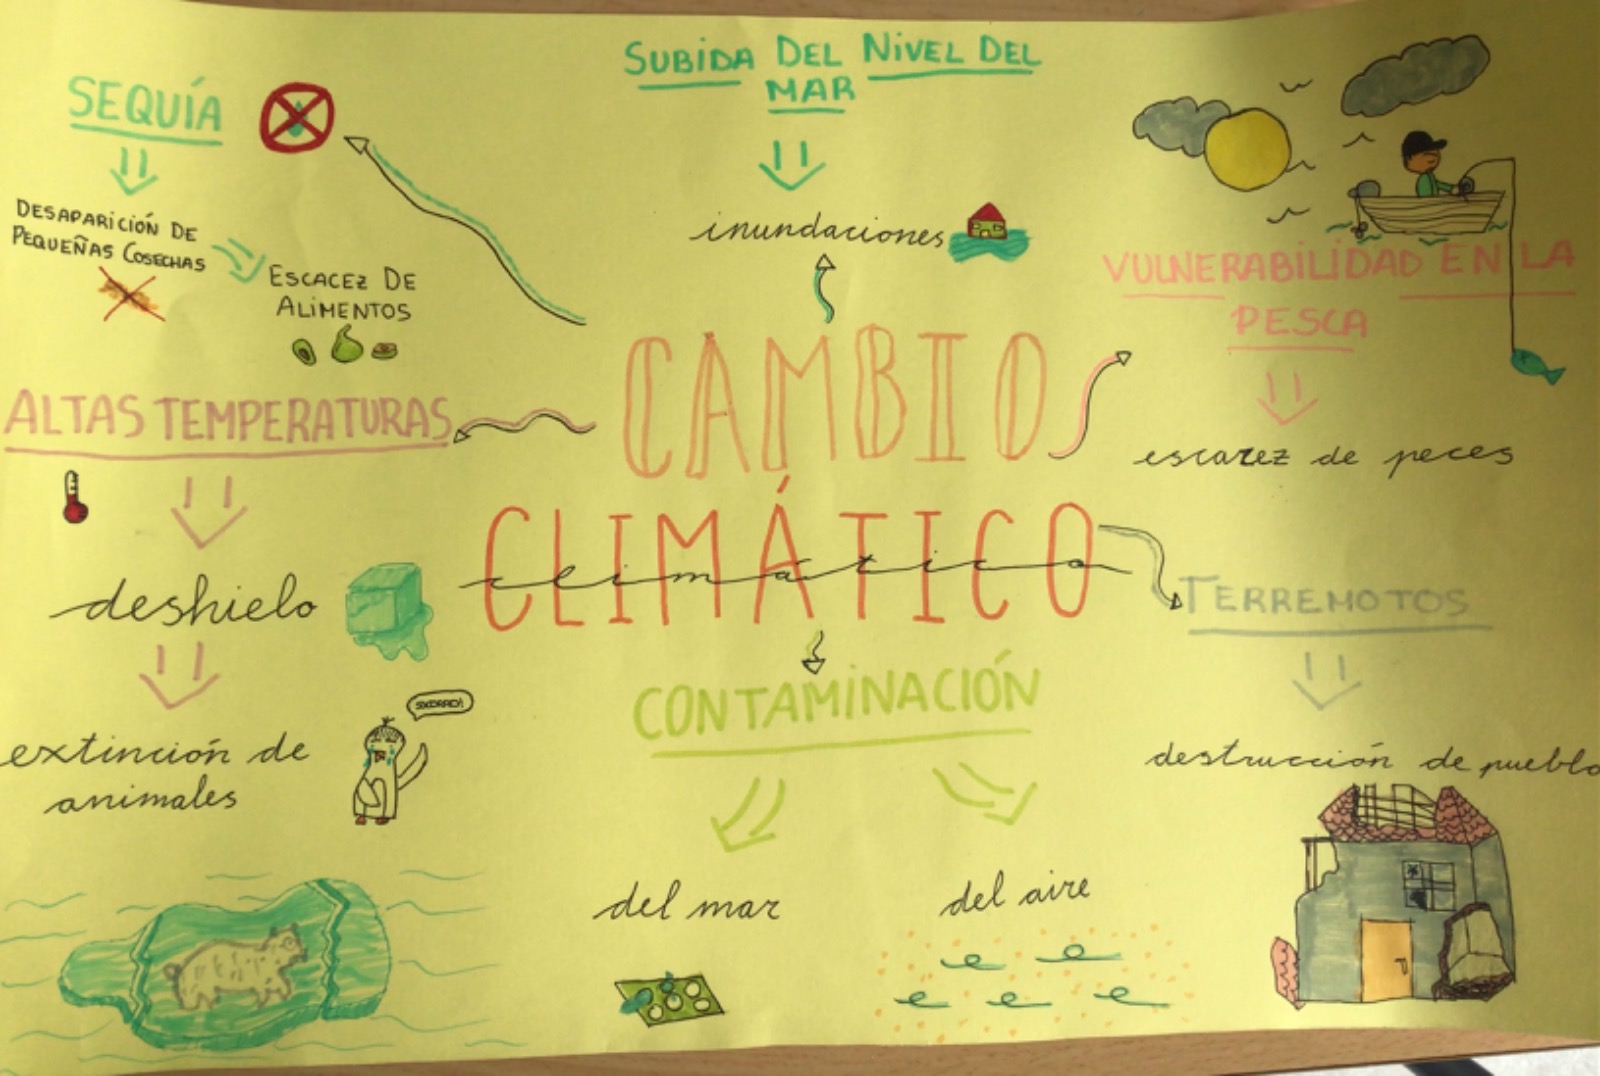 SUBIDA DEL NIVEL DEL
MAR
inundaciones
SEQUÍA
DESAPARICIÓN DE
PEQUEÑAS COSECHAS
ESCACEZ DE
ALIMENTOS
VULNERABILIDAD EN LA
PESCA
escazez de peces
CAMBIO
CLIMÁTICO
climático
ALTAS TEMPERATURAS
deshielo
extinción de
animales
SOCORRO!
TERREMOTOS
destrucción de pueblo
CONTAMINACIÓN
del mar
del aire